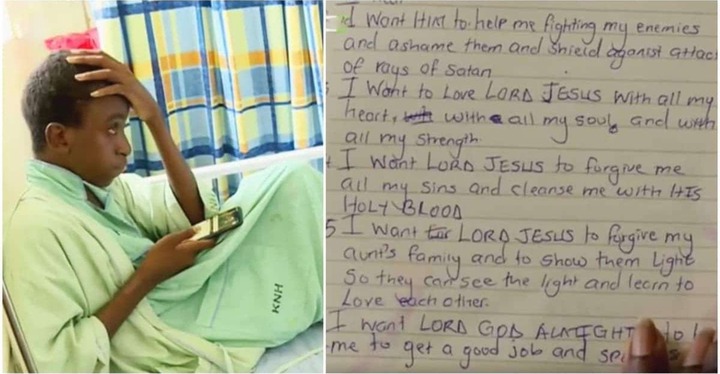 KNH
I Want HIM to help me fighting my enemies
and ashame them and shield aganist attac
of rays of Satan
I Waht to Love LORD JESUS With all my
heart, with all my soul, and with
all my strength.
I Want LORD JESUS to forgive me
all my sins and cleanse me with HIS
HOLY BLOOD
5 I Want LORD JESUS to forgive my
aunt's family and to show them Light
So they can see the light and learn to
Love each other.
I want LORD GOD ALMIGHT to
me to get a good job and